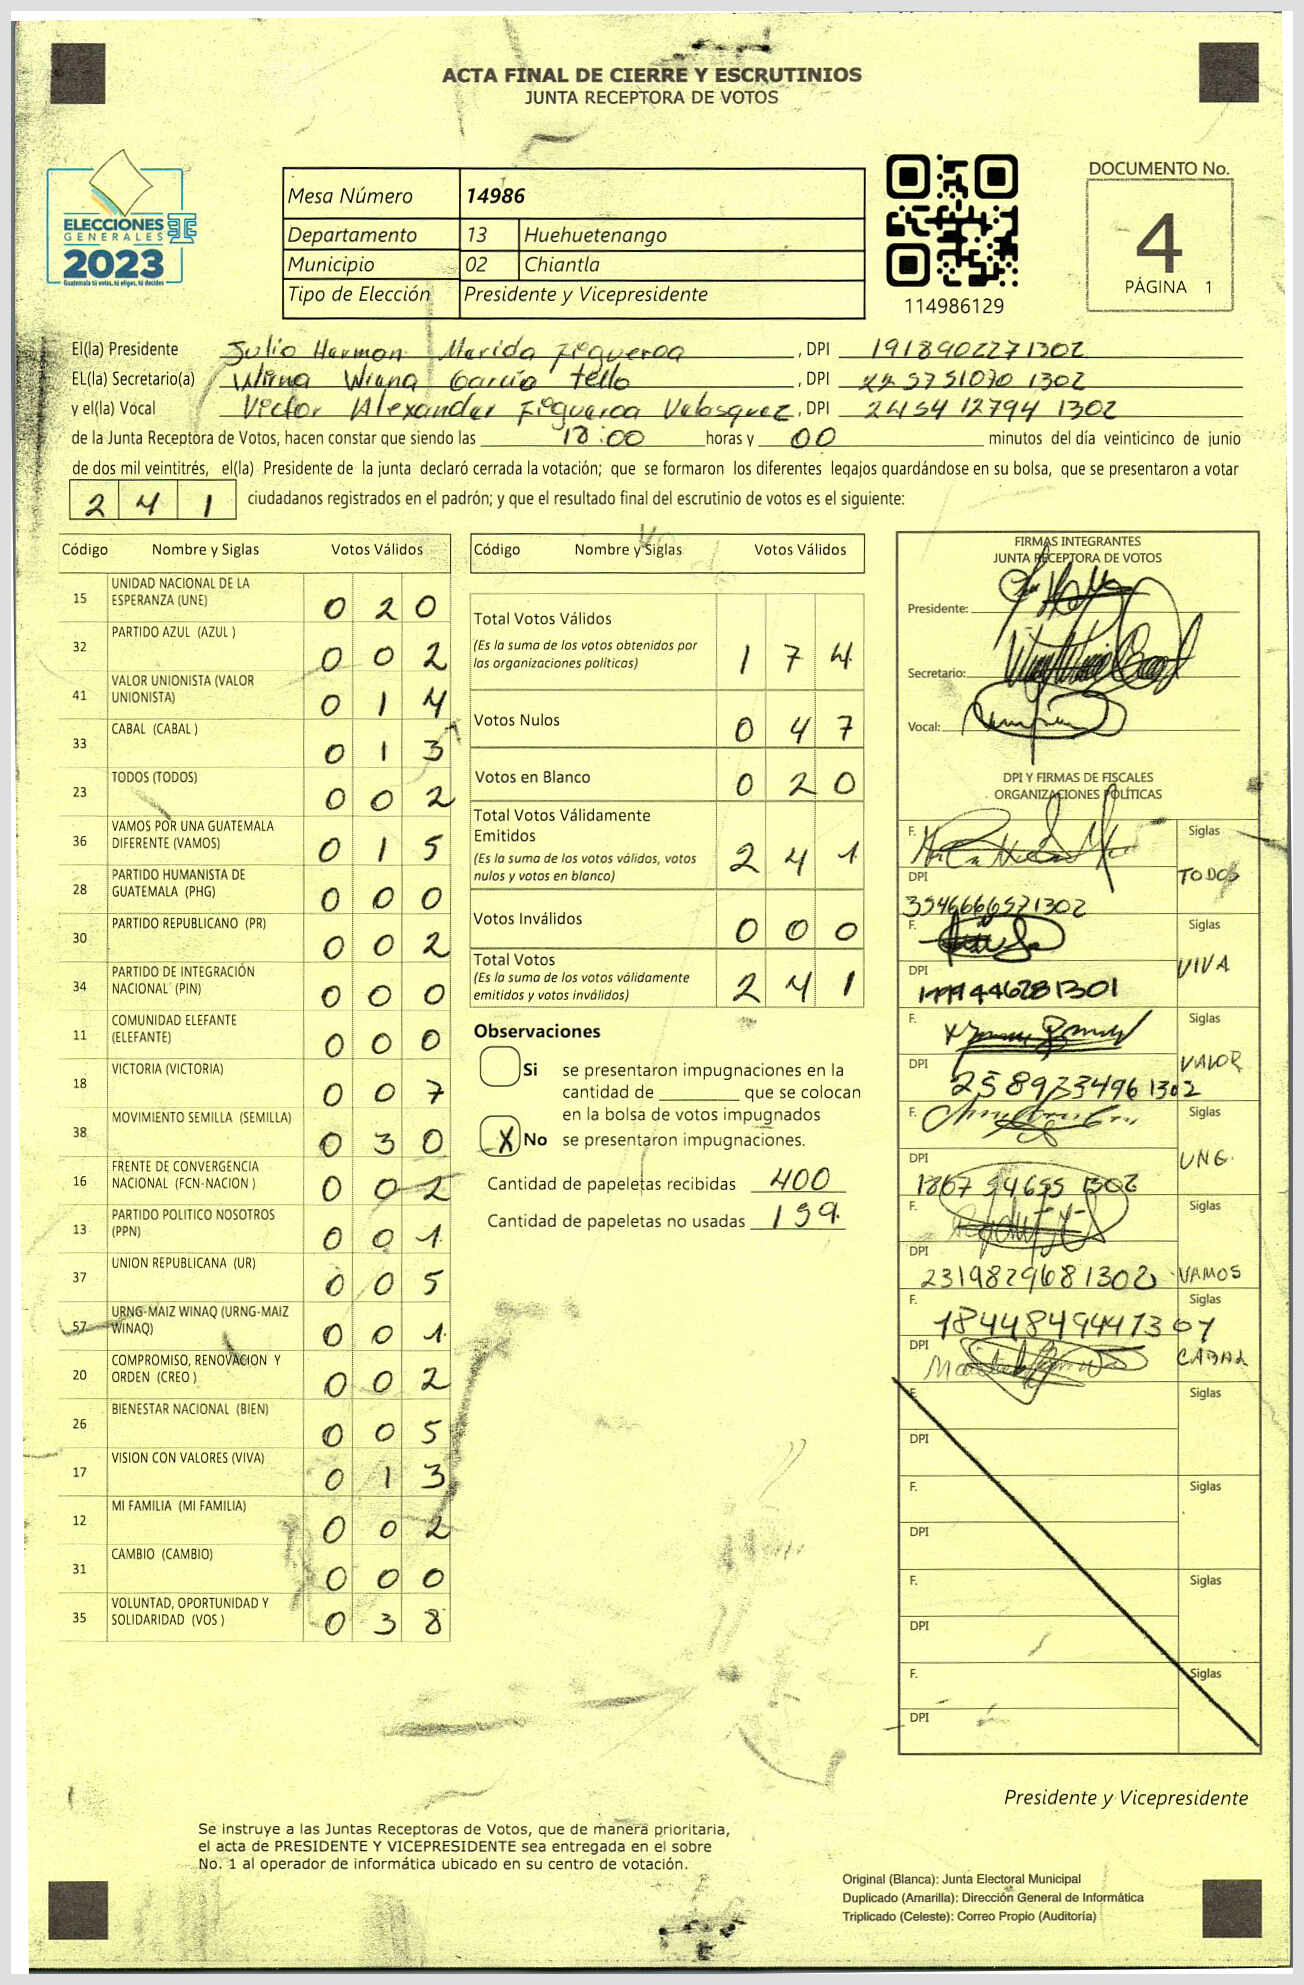 ACTA FINAL DE CIERRE Y ESCRUTINIOS
JUNTA RECEPTORA DE VOTOS
ELECCIONES
GENERALES
2023
Guatemala tú votas, tú eliges, tú decides
Mesa Número 14986
Departamento 13 Huehuetenango
Municipio 02 Chiantla
Tipo de Elección Presidente y Vicepresidente
114986129
DOCUMENTO No.
4
PÁGINA 1
El(la) Presidente Julio Harmon Marida Figueroa, DPI 1918902271302
EL(la) Secretario(a) Wirna Wiana García Tello, DPI 225751070 1302
y el(la) Vocal Victor Alexander Figueroa Velasquez, DPI 2454 12794 1302
de la Junta Receptora de Votos, hacen constar que siendo las 18:00 horas y 00 minutos del día veinticinco de junio
de dos mil veintitrés, el(la) Presidente de la junta declaró cerrada la votación; que se formaron los diferentes legajos guardándose en su bolsa, que se presentaron a votar
2 4 1 ciudadanos registrados en el padrón; y que el resultado final del escrutinio de votos es el siguiente:
Código Nombre y Siglas Votos Válidos
15 UNIDAD NACIONAL DE LA ESPERANZA (UNE) 0 2 0
32 PARTIDO AZUL (AZUL ) 0 0 2
41 VALOR UNIONISTA (VALOR UNIONISTA) 0 1 4
33 CABAL (CABAL ) 0 1 3
23 TODOS (TODOS) 0 0 2
36 VAMOS POR UNA GUATEMALA DIFERENTE (VAMOS) 0 1 5
28 PARTIDO HUMANISTA DE GUATEMALA (PHG) 0 0 0
30 PARTIDO REPUBLICANO (PR) 0 0 2
34 PARTIDO DE INTEGRACIÓN NACIONAL (PIN) 0 0 0
11 COMUNIDAD ELEFANTE (ELEFANTE) 0 0 0
18 VICTORIA (VICTORIA) 0 0 7
38 MOVIMIENTO SEMILLA (SEMILLA) 0 3 0
16 FRENTE DE CONVERGENCIA NACIONAL (FCN-NACION ) 0 0 2
13 PARTIDO POLITICO NOSOTROS (PPN) 0 0 1
37 UNION REPUBLICANA (UR) 0 0 5
57 URNG-MAIZ WINAQ (URNG-MAIZ WINAQ) 0 0 1
20 COMPROMISO, RENOVACION Y ORDEN (CREO ) 0 0 2
26 BIENESTAR NACIONAL (BIEN) 0 0 5
17 VISION CON VALORES (VIVA) 0 1 3
12 MI FAMILIA (MI FAMILIA) 0 0 2
31 CAMBIO (CAMBIO) 0 0 0
35 VOLUNTAD, OPORTUNIDAD Y SOLIDARIDAD (VOS ) 0 3 8
Código Nombre y Siglas Votos Válidos
Total Votos Válidos 1 7 4
(Es la suma de los votos obtenidos por
las organizaciones políticas)
Votos Nulos 0 4 7
Votos en Blanco 0 2 0
Total Votos Válidamente
Emitidos 2 4 1
(Es la suma de los votos válidos, votos
nulos y votos en blanco)
Votos Inválidos 0 0 0
Total Votos 2 4 1
(Es la suma de los votos válidamente
emitidos y votos inválidos)
Observaciones
Si se presentaron impugnaciones en la
cantidad de ________ que se colocan
en la bolsa de votos impugnados
X No se presentaron impugnaciones.
Cantidad de papeletas recibidas 400
Cantidad de papeletas no usadas 159
FIRMAS INTEGRANTES
JUNTA RECEPTORA DE VOTOS
Presidente:
Secretario:
Vocal:
DPI Y FIRMAS DE FISCALES
ORGANIZACIONES POLÍTICAS
F. Siglas
DPI TODOS
3546666571302
F. Siglas
DPI VIVA
1999446281301
F. Siglas
DPI VALOR
2589334961302
F. Siglas
DPI UNE.
1867 54655 1302
F. Siglas
DPI
2319829681302 VAMOS
F. Siglas
1844849441307
DPI CABAL
F. Siglas
DPI
F. Siglas
DPI
F. Siglas
DPI
F. Siglas
DPI
Presidente y Vicepresidente
Se instruye a las Juntas Receptoras de Votos, que de manera prioritaria,
el acta de PRESIDENTE Y VICEPRESIDENTE sea entregada en el sobre
No. 1 al operador de informática ubicado en su centro de votación.
Original (Blanca): Junta Electoral Municipal
Duplicado (Amarilla): Dirección General de Informática
Triplicado (Celeste): Correo Propio (Auditoría)